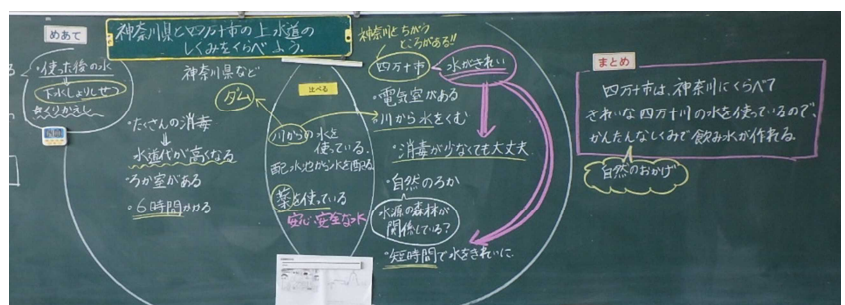 めあて
神奈川県と四万十市の上水道の
しくみをくらべよう。
・使った後の水
下水しょりしせつ
くりかえし
神奈川県など
ダム
・たくさんの消毒
水道代が高くなる
・ろか室がある
・6時間かかる
比べる
川からの水を
使っている。
配水池から水を配る。
薬を使っている
安心、安全な水
神奈川とちがう
ところがある!!
四万十市
水がきれい
・電気室がある
川から水をくむ
・消毒が少なくても大丈夫
・自然のろか
水源の森林が
関係している?
・短時間で水をきれいに
まとめ
四万十市は、神奈川にくらべて
きれいな四万十川の水を使っているので、
かんたんなしくみで飲み水が作れる。
自然のおかげ